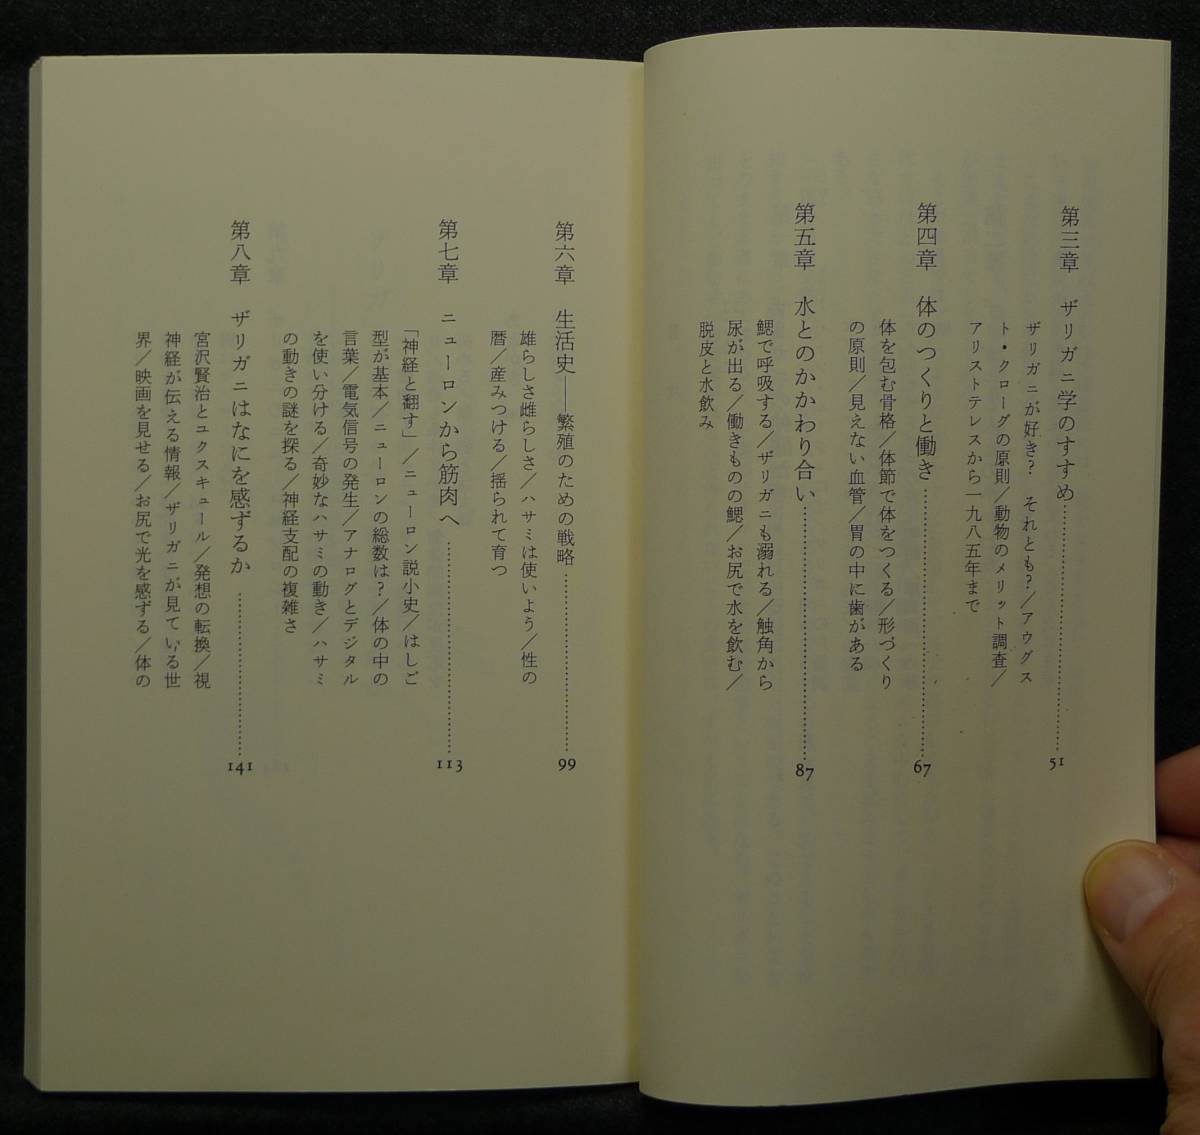 第三章　ザリガニ学のすすめ…………51
ザリガニが好き？　それとも？／アウグス
ト・クローグの原則／動物のメリット調査／
アリストテレスから一九八五年まで
第四章　体のつくりと働き…………67
体を包む骨格／体節で体をつくる／形づくり
の原則／見えない血管／胃の中に歯がある
第五章　水とのかかわり合い…………87
鰓で呼吸する／ザリガニも溺れる／触角から
尿が出る／働きものの鰓／お尻で水を飲む／
脱皮と水飲み
第六章　生活史――繁殖のための戦略…………99
雄らしさ雌らしさ／ハサミは使いよう／性の
暦／産みつける／揺られて育つ
第七章　ニューロンから筋肉へ…………113
「神経と翻す」／ニューロン説小史／はしご
型が基本／ニューロンの総数は？／体の中の
言葉／電気信号の発生／アナログとデジタル
を使い分ける／奇妙なハサミの動き／ハサミ
の動きの謎を探る／神経支配の複雑さ
第八章　ザリガニはなにを感ずるか…………141
宮沢賢治とユクスキュール／発想の転換／視
神経が伝える情報／ザリガニが見ている世
界／映画を見せる／お尻で光を感ずる／体の